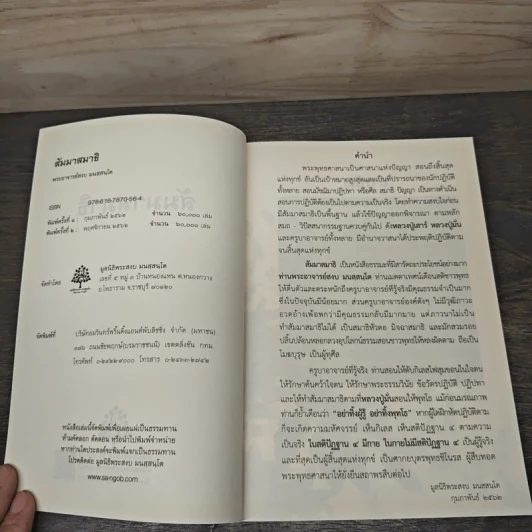 สัมมาสมาธิ
พระอาจารย์สงบ มนสฺสนฺโต
ISBN 978-616-7870-56-4
พิมพ์ครั้งที่ ๑ : กุมภาพันธ์ ๒๕๖๒ จำนวน ๒๐,๐๐๐ เล่ม
พิมพ์ครั้งที่ ๒ : พฤศจิกายน ๒๕๖๒ จำนวน ๒๐,๐๐๐ เล่ม
จัดทำโดย
มูลนิธิพระสงบ มนสฺสนฺโต
เลขที่ ๕ หมู่ ๓ บ้านหนองแหน ต.หนองกวาง
อ.โพธาราม จ.ราชบุรี ๗๐๑๒๐
จัดพิมพ์ที่
บริษัทอมรินทร์พริ้นติ้งแอนด์พับลิชชิ่ง จำกัด (มหาชน)
ถนนชัยพฤกษ์(บรมราชชนนี) เขตตลิ่งชัน กทม.
โทรศัพท์ โทรสาร
หนังสือเล่มนี้จัดพิมพ์เพื่อเผยแผ่เป็นธรรมทาน
ห้ามคัดลอก ตัดตอน หรือนำไปพิมพ์จำหน่าย
หากท่านใดประสงค์จะพิมพ์แจกเป็นธรรมทาน
โปรดติดต่อ มูลนิธิพระสงบ มนสฺสนฺโต
www.sa-ngob.com
คำนำ
พระพุทธศาสนาเป็นศาสนาแห่งปัญญา สอนถึงสิ้นสุด
แห่งทุกข์ อันเป็นเป้าหมายสูงสุดและเป็นที่ปรารถนาของนักปฏิบัติ
ทั้งหลาย สอนมัชฌิมาปฏิปทา หรือศีล สมาธิ ปัญญา เป็นทางดำเนิน
สอนการปฏิบัติต้องเป็นไปตามความเป็นจริง โดยทำความสงบใจก่อน
มีสัมมาสมาธิเป็นพื้นฐาน แล้วใช้ปัญญาออกพิจารณา ตามหลัก
สมถ - วิปัสสนากรรมฐานควบคู่กันไป ดังหลวงปู่เสาร์ หลวงปู่มั่น
และครูบาอาจารย์ทั้งหลาย มีอำนาจวาสนาได้ประพฤติปฏิบัติตาม
จนสิ้นสุดแห่งทุกข์
สัมมาสมาธิ เป็นหนังสือธรรมะที่มีสาระและประโยชน์อย่างมาก
ท่านพระอาจารย์สงบ มนสฺสนฺโต ท่านเมตตาเทศน์เตือนสติชาวพุทธ
ให้ตื่นตัวและตระหนักถึงครูบาอาจารย์ที่รู้จริงมีคุณธรรมจำเป็นมาก
ซึ่งในปัจจุบันมีน้อยมาก ส่วนครูบาอาจารย์องค์ดังๆ ไม่มีวุฒิภาวะ
อวดอ้างเพ้อพกว่ามีคุณธรรมกลับมีมากมาย แต่ภาวนาไม่เป็น
ทำสัมมาสมาธิไม่ได้ เป็นสมาธิหัวตอ มิจฉาสมาธิ และมักสวมรอย
ปลิ้นปล้อนหลอกลวงอุปโลกน์ธรรมสอนชาวพุทธให้หลงผิดตาม ถือเป็น
โมฆบุรุษ เป็นผู้ทุศีล
ครูบาอาจารย์ที่รู้จริง ท่านสอนให้ดับกิเลสไฟสุมขอนในใจตน
ให้รักษาค้นคว้าใจตน ให้รักษาพระธรรมวินัย ข้อวัตรปฏิบัติ ปฏิปทา
และให้ทำสัมมาสมาธิตามที่หลวงปู่มั่นสอนให้พุทโธ แม้ก่อนมรณภาพ
ท่านก็ย้ำเตือนว่า “อย่าทิ้งผู้รู้ อย่าทิ้งพุทโธ” หากผู้ใดฝึกหัดปฏิบัติตาม
ก็จะเกิดความมหัศจรรย์ เห็นกิเลส เห็นสติปัฏฐาน ๔ ตามความ
เป็นจริง ในสติปัฏฐาน ๔ มีกาย ในกายไม่มีสติปัฏฐาน ๔ เป็นผู้รู้จริง
และที่สุดเป็นผู้สิ้นสุดแห่งทุกข์ เป็นศากยบุตรพุทธชิโนรส ผู้สืบทอด
พระพุทธศาสนาให้ยั่งยืนสถาพรสืบต่อไป
มูลนิธิพระสงบ มนสฺสนฺโต
กุมภาพันธ์ ๒๕๖๒